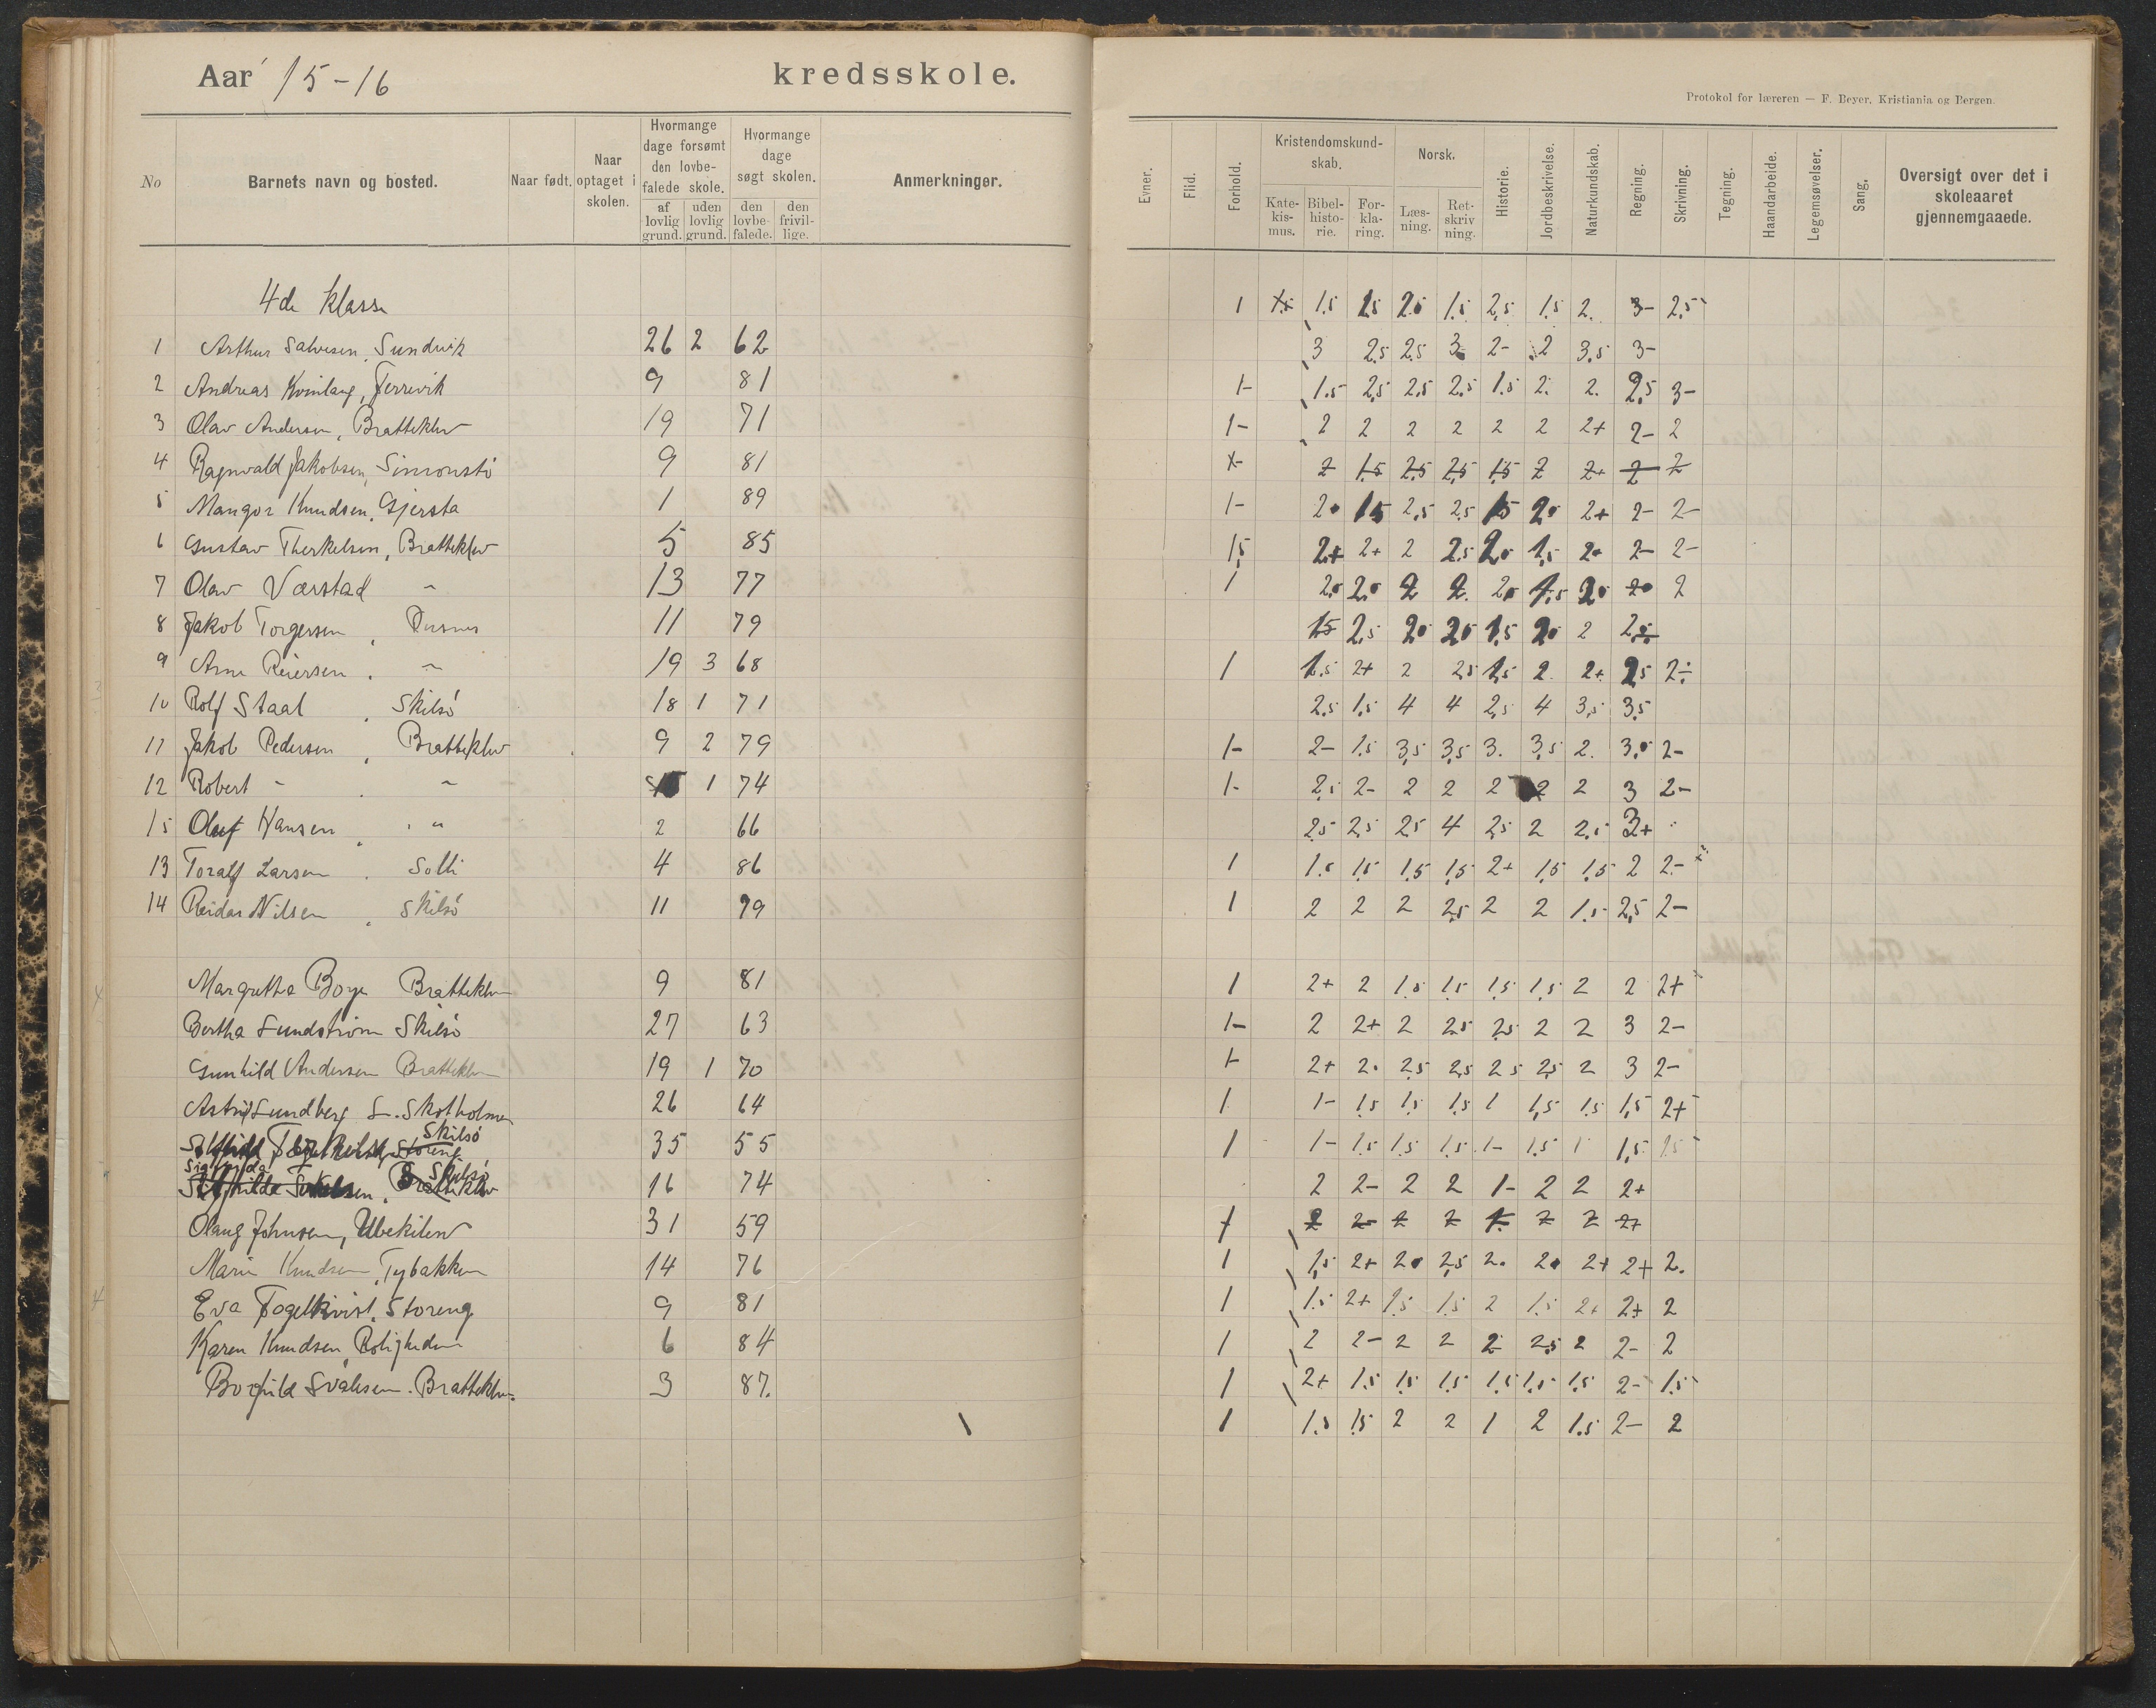 Aar 15-16 kredsskole.
No Barnets navn og bosted. Naar født. Naar optaget i skolen. Hvormange dage forsømt den lovbefalede skole. af lovlig grund. uden lovlig grund. Hvormange dage søgt skolen. den lovbefalede. den frivillige. Anmerkninger.
4de klasse
1 Arthur Salvesen, Sundvik 26 2 62
2 Andreas Kvinlaug, Færrevik 9 81
3 Olav Andersen, Bratteklev 19 71
4 Ragnvald Jakobsen, Simonstö 9 81
5 Mangor Knudsen, Gjersta 1 89
6 Gustav Therkelsen, Bratteklev 5 85
7 Olav Værstad " 13 77
8 Jakob Torgersen, 11 79
9 Arne Reiersen, " 19 3 68
10 Rolf Staal, Skilsö 18 1 71
11 Jakob Pedersen, Bratteklev 9 2 79
12 Robert - " 1 74
15 Oluf Hansen, " 2 66
13 Toralf Larsen, Solli 4 86
14 Reidar Nilsen, Skilsö 11 79
Margrethe Boye Bratteklev 9 81
Bertha Lundström Skilsö 27 63
Gunhild Andersen Bratteklev 19 1 70
Astrid Lundberg L. Skotholmen 26 64
Skilsö
Storeng 35 55
Skilsö
Bratteklev 16 74
Olaug Johnsen, Ubekilen 31 59
Marie Knudsen, Tybakken 14 76
Eva Fogelkvist, Storeng 9 81
Karen Knudsen, Roligheden 6 84
Borghild Svalesen. Bratteklev. 3 87.
Protokol for læreren — F. Beyer, Kristiania og Bergen.
Evner. Flid. Forhold. Kristendomskundskab. Katekismus. Bibelhistorie. Forklaring. Norsk. Læsning. Retskrivning. Historie. Jordbeskrivelse. Naturkundskab. Regning. Skrivning. Tegning. Haandarbeide. Legemsøvelser. Sang. Oversigt over det i skoleaaret gjennemgaaede.
1 1.5 1.5 2.5 2.5 1.5 2.5 1.5 2. 3- 2.5
3 2.5 2.5 3 2- 2 3.5 3-
1- 1.5 2.5 2.5 2.5 1.5 2. 2. 2.5 3-
1- 2 2 2 2 2 2 2+ 2- 2
1- 2 1.5 2.5 2.5 1.5 2 2+ 2 2
1- 2. 1.5 2.5 2.5 1.5 2. 2+ 2- 2-
1.5 2+ 2+ 2 2.5 2. 1.5 2+ 2- 2-
1 2. 2. 2 2. 2. 1.5 2. 2. 2
1.5 2.5 2. 2.5 1.5 2. 2 2.
1 1.5 2+ 2 2.5 1.5 2 2+ 2.5 2÷
2.5 1.5 4 4 2.5 4 3.5 3.5
1- 2- 1.5 3.5 3.5 3. 3.5 2. 3. 2-
1- 2.5 2- 2 2 2 2 2 3 2-
2.5 2.5 2.5 4 2.5 2 2.5 3+
1 1.5 1.5 1.5 1.5 2+ 1.5 1.5 2 2-
1 2 2 2 2.5 2 2 1.5 2.5 2-
1 2+ 2 1.5 1.5 1.5 1.5 2 2 2+
1- 2 2+ 2 2.5 2.5 2 2 3 2-
1- 2+ 2. 2.5 2.5 2.5 2.5 2 3 2-
1 1- 1.5 1.5 1.5 1 1.5 1.5 1.5 2+
1 1- 1.5 1.5 1.5 1- 1.5 1 1.5 1.5
2 2- 2 2 1- 2 2 2+
1 2 2- 2 2 1- 2 2 2+
1 1.5 2+ 2. 2.5 2. 2. 2+ 2+ 2.
1 1.5 2+ 1.5 1.5 2 1.5 2+ 2+ 2
1 2 2- 2 2 2 2.5 2 2- 2
1 2+ 1.5 1.5 1.5 1.5 1.5 1.5 2- 1.5
1 1.5 1.5 2 2 1 2 1.5 2- 2